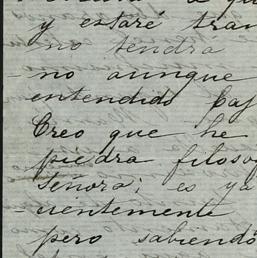 y estaré tran
no tendra
- no aunque
entendido Caf
Creo que he
piedra filosof
Señora; es ya
- cientemente
pero sabiendo